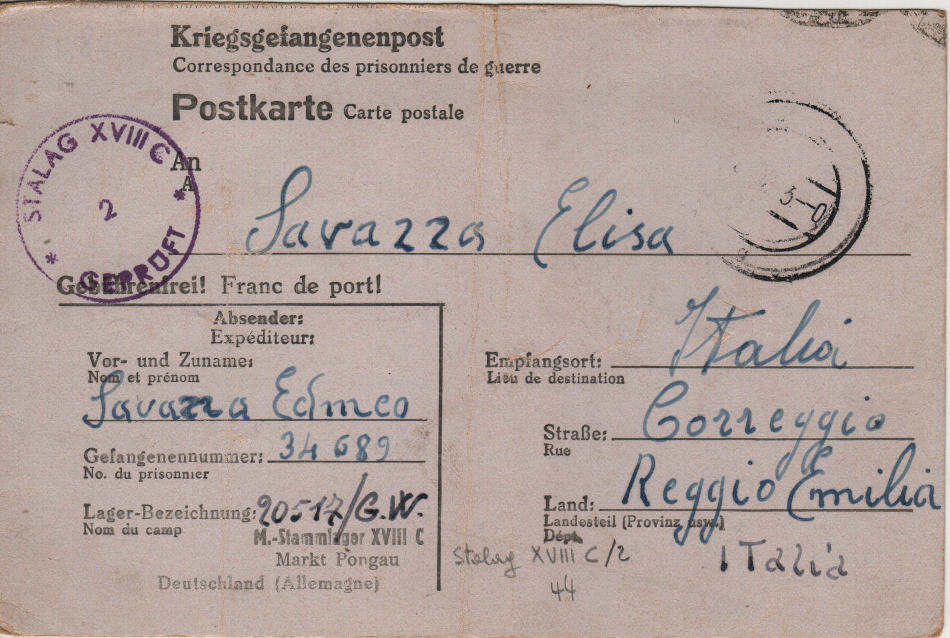 Kriegsgefangenenpost
Correspondance des prisonniers de guerre
Postkarte Carte postale
STALAG XVIII C
2
GEPRÜFT
An
A
Savazza Elisa
Gebührenfrei! Franc de port!
Absender:
Expéditeur:
Vor- und Zuname:
Nom et prénom
Savazza Edmeo
Gefangenennummer: 34689
No. du prisonnier
Lager-Bezeichnung: 20517/G.W.
Nom du camp
M.-Stammlager XVIII C
Markt Pongau
Deutschland (Allemagne)
Empfangsort: Italia
Lieu de destination
Straße: Correggio
Rue
Land: Reggio Emilia
Landesteil (Provinz usw.)
Dépt.
ITalia
Stalag XVIII C/2
44